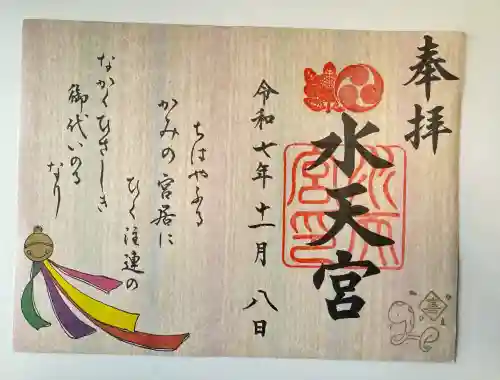 奉拝
水天宮
令和七年十一月八日
ちはやふる
かみの宮居に
ひく注連の
なかくひさしき
御代いのる
なり